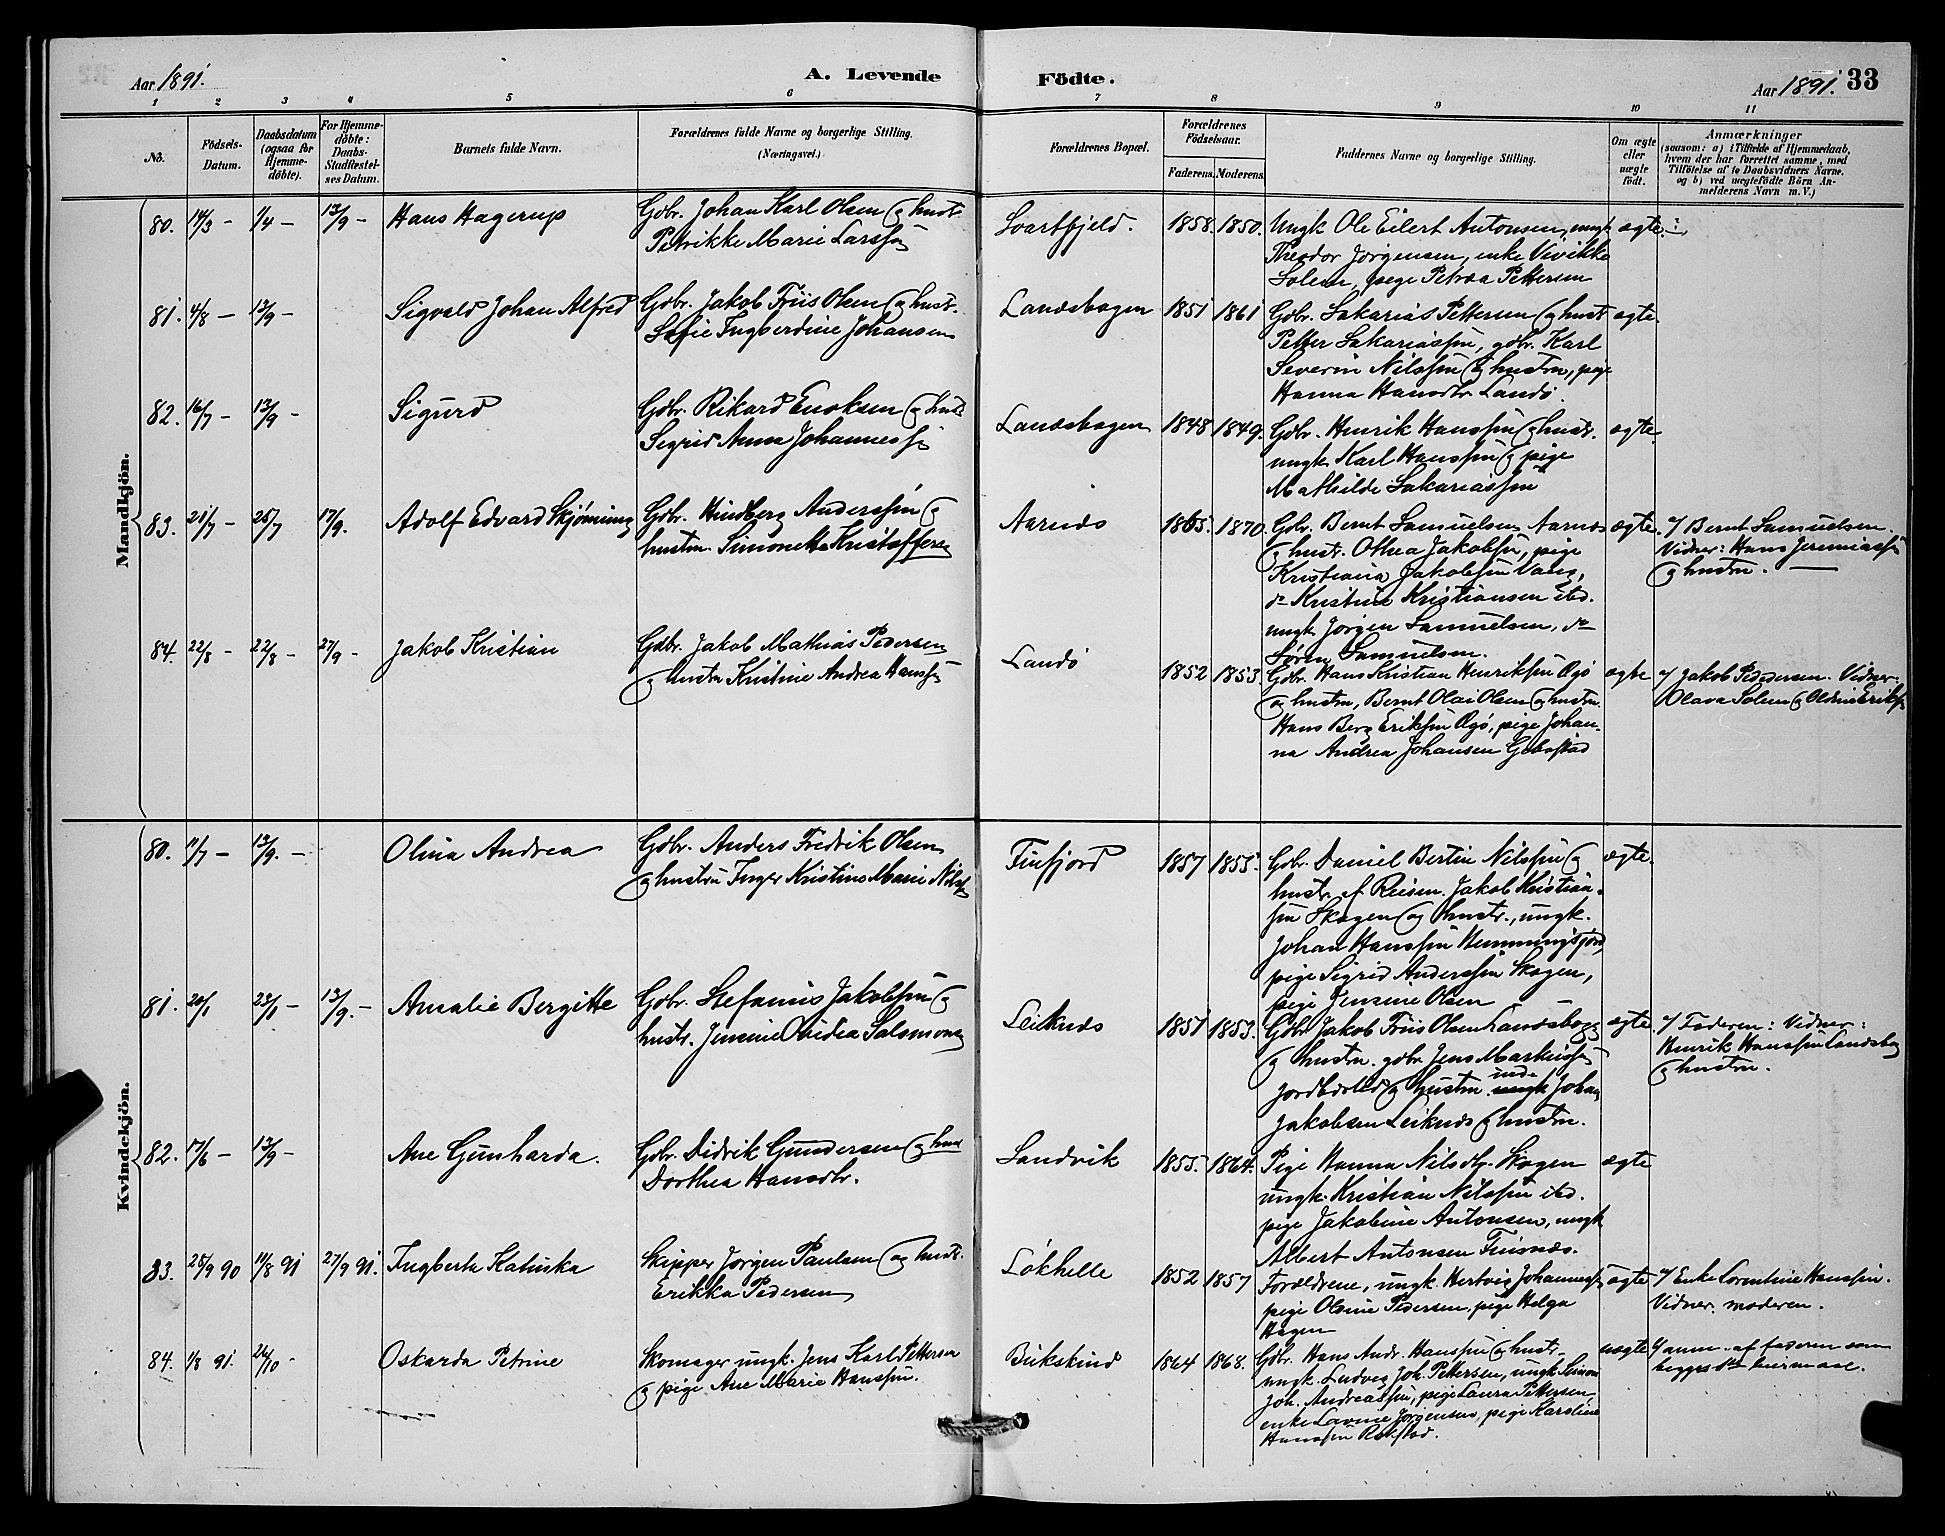 Aar 1891.
A. Levende Födte.
Aar 1891. 33
1 2 3 4 5 6 7 8 9 10 11
No.
Födsels-
Datum.
Daabsdatum
(ogsaa for
Hjemme-
döbte).
For Hjemme-
döbte:
Daabs-
Stadfæstel-
ses Datum.
Barnets fulde Navn.
Forældrenes fulde Navne og borgerlige Stilling.
(Næringsvei.)
Forældrenes Bopæl.
Forældrenes
Födselsaar.
Faderens. Moderens.
Faddernes Navne og borgerlige Stilling.
Om ægte
eller
uægte
födt.
Anmærkninger
(saasom: a) i Tilfælde af Hjemmedaab,
hvem der har forrettet samme, med
Tilföielse af to Daabsvidners Navne,
og b) ved uægtefödte Börn An-
melderens Navn m. V.)
Mandkjön.
80. 14/3 - 1/4 - 13/9 - Hans Hagerup
Gdbr. Johan Karl Olsen og hustr.
Petrikke Marie Larssen
Svartfjeld. 1858. 1850.
Ungk Ole Eilert Antonsen, ungk
Theodor Jörgensen, enke Vivikke
Solem, pige Petrea Pettersen
ægte.
81. 4/8 - 13/9 - Sigvald Johan Alfred
Gdbr. Jakob Friis Olsen og hustr.
Sofie Ingberdine Johansen
Landsbogen 1851 1861
Gdbr. Sakarias Pettersen og hustr
Petter Sakariassen, gdbr. Karl
Severin Nilssen og hustru, pige
Hanna Hansdtr. Landö.
ægte.
82. 16/7 - 13/9 - Sigurd
Gdbr. Rikard Enoksen og hust.
Sigrid Anna Johanness
Landsbogen 1848 1849.
Gdbr. Henrik Hanssen og hustr.
ungk. Karl Hanssen og pige
Mathilde Sakariassen
ægte.
83. 21/7 - 25/7 17/9. Adolf Edvard Skjönning
Gdbr. Hindberg Anderssen og
hustru Simonette Kristoffersen
Aarnes 1865. 1870.
Gdbr. Bernt Samuelsen Aarnes
og hustr. Othea Jakobsen, pige
Kristiana Jakobsen Vang,
do Kristine Kristiansen sted.
ungk Jörgen Samuelsen, do
Sören Samuelsen.
ægte.
v/ Bernt Samuelsen.
Vidner: Hans Jeremiass
og hustru.
84. 22/8 - 22/8 - 27/9 - Jakob Kristian
Gdbr. Jakob Mathias Pedersen
og hustru Kristine Andrea Hanss
Landö 1852 1853.
Gdbr. Hans Kristian Henriksen Ögö
og hustru, Bernt Olai Olsen og hustru.
Hans Berg Eriksen Ögö, pige Johan-
na Andrea Johansen Gibostad
ægte
v/ Jakob Pedersen. Vidner:
Olava Solem og Oldine Eriks
Kvindekjön.
80. 11/7 - 13/9. - Olina Andrea
Gdbr. Anders Fredrik Olsen
og hustru Inger Kristine Marie Nilss
Finfjord 1857 1855.
Gdbr. Daniel Bertin Nilssen og
hustr. af Reisen. Jakob Kristian-
sen Skogen og hustr., ungk.
Johan Hanssen Hemmingsjord,
pige Sigrid Anderssen Skogen,
pige Jensine Olsen
ægte.
81. 20/1 23/1 - 13/9. - Amalie Bergitte
Gdbr. Stefanus Jakobsen og
hustr. Jensine Ovidea Salomons
Leiknes 1851 1853.
Gdbr. Jakob Friis Olsen Landsbogen
og hustru. gdbr. Jens Markuss
Jordbærlid og hustru. ind. Johan
Jakobsen Leiknes og hustru.
ægte.
v/ Faderen: Vidner:
Henrik Hanssen Landsbog
og hustru.
82. 17/6 - 13/9 - Ane Gunharda.
Gdbr. Didrik Gundersen og hust
Dorthea Hansdtr.
Sandvik 1855. 1864.
Pige Hanna Nilsdtr. Skogen
ungk. Kristian Nilssen sted.
pige Jakobine Antonsen, ungk
Albert Antonsen Finsnes.
ægte
83. 25/9 90 11/8 91 27/9 91. Ingberta Katinka
Skipper Jörgen Paulsen og hustr.
Erikka Pedersen
Lökhelle 1852 1857
Forældrene, ungk. Hertvig Johanness
pige Olvine Pedersen, pige Helga
Hagen
ægte
v/ Enke Lorentine Hanssen.
Vidner. moderen.
84. 1/8 91. 24/10 - Oskarda Petrine
Skomager ungk. Jens Karl Pettersen
og pige Ane Marie Hanssen.
Bukskind 1864 1868.
Gdbr. Hans Andr. Hanssen og hustr.
ungk. Ludvig Joh. Pettersen, ungk Simon
Joh. Andreassen, pige Laura Pettersen,
enke Lavine Jörgensen, pige Karoline
Hanssen Rokstad.
uægte
anm. af faderen som